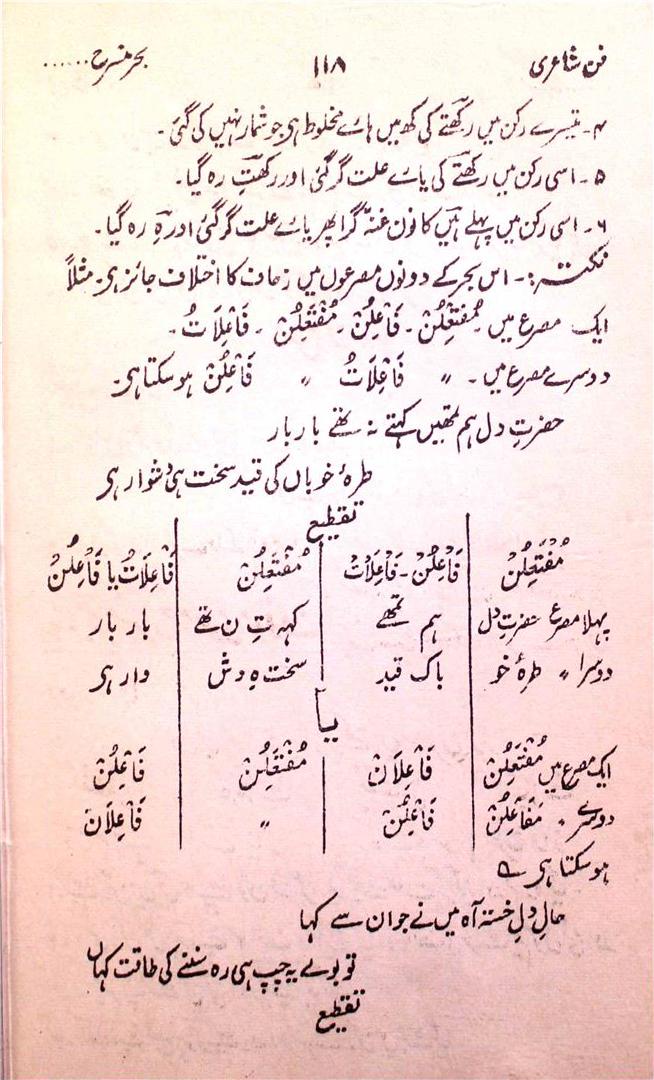 فن شاعری ۱۱۸ بحر منسرح......
۴۔ تیسرے رکن میں رکھتے کی کھ میں ہائے مخلوط ہی جو شمار نہیں کی گئی۔
۵۔ اسی رکن میں رکھتے کی یائے علت گر گئی اور رکھتِ رہ گیا۔
۶۔ اسی رکن میں پہلے ہیں کا نون غنہ گرا پھر یائے علت گر گئی اور ہِ رہ گیا۔
نکتہ:۔ اس بحر کے دونوں مصرعوں میں زحاف کا اختلاف جائز ہی۔ مثلاً
ایک مصرع میں۔ مُفْتَعِلُنْ۔ فَاعِلُنْ۔ مُفْتَعِلُنْ۔ فَاعِلَاتُ۔
دوسرے مصرع میں۔ 〃 فَاعِلَاتُ 〃 فَاعِلُنْ ہو سکتا ہی۔
حضرتِ دل ہم تمھیں کہتے نہ تھے بار بار
طرۂ خوباں کی قید سخت ہی دشوار ہی
تقطیع
مُفْتَعِلُنْ فَاعِلُنْ۔فَاعِلَاتُ مُفْتَعِلُنْ فَاعِلَاتُ یا فَاعِلُنْ
پہلا مصرع حضرتِ دل ہم تمھے کہہ تِ ن تھے بار بار
دوسرا 〃 طرۂ خو باک قید سخت ہِ دش وار ہی
یا
ایک مصرع میں مُفْتَعِلُنْ فَاعِلَانْ مُفْتَعِلُنْ فَاعِلُنْ
دوسرے 〃 مَفَاعِلُنْ فَاعِلُنْ 〃 فَاعِلَانَ
ہو سکتا ہی
حالِ دلِ خستہ آہ میں نے جو ان سے کہا
تو بولے یہ چپ ہی رہ سننے کی طاقت کہاں
تقطیع